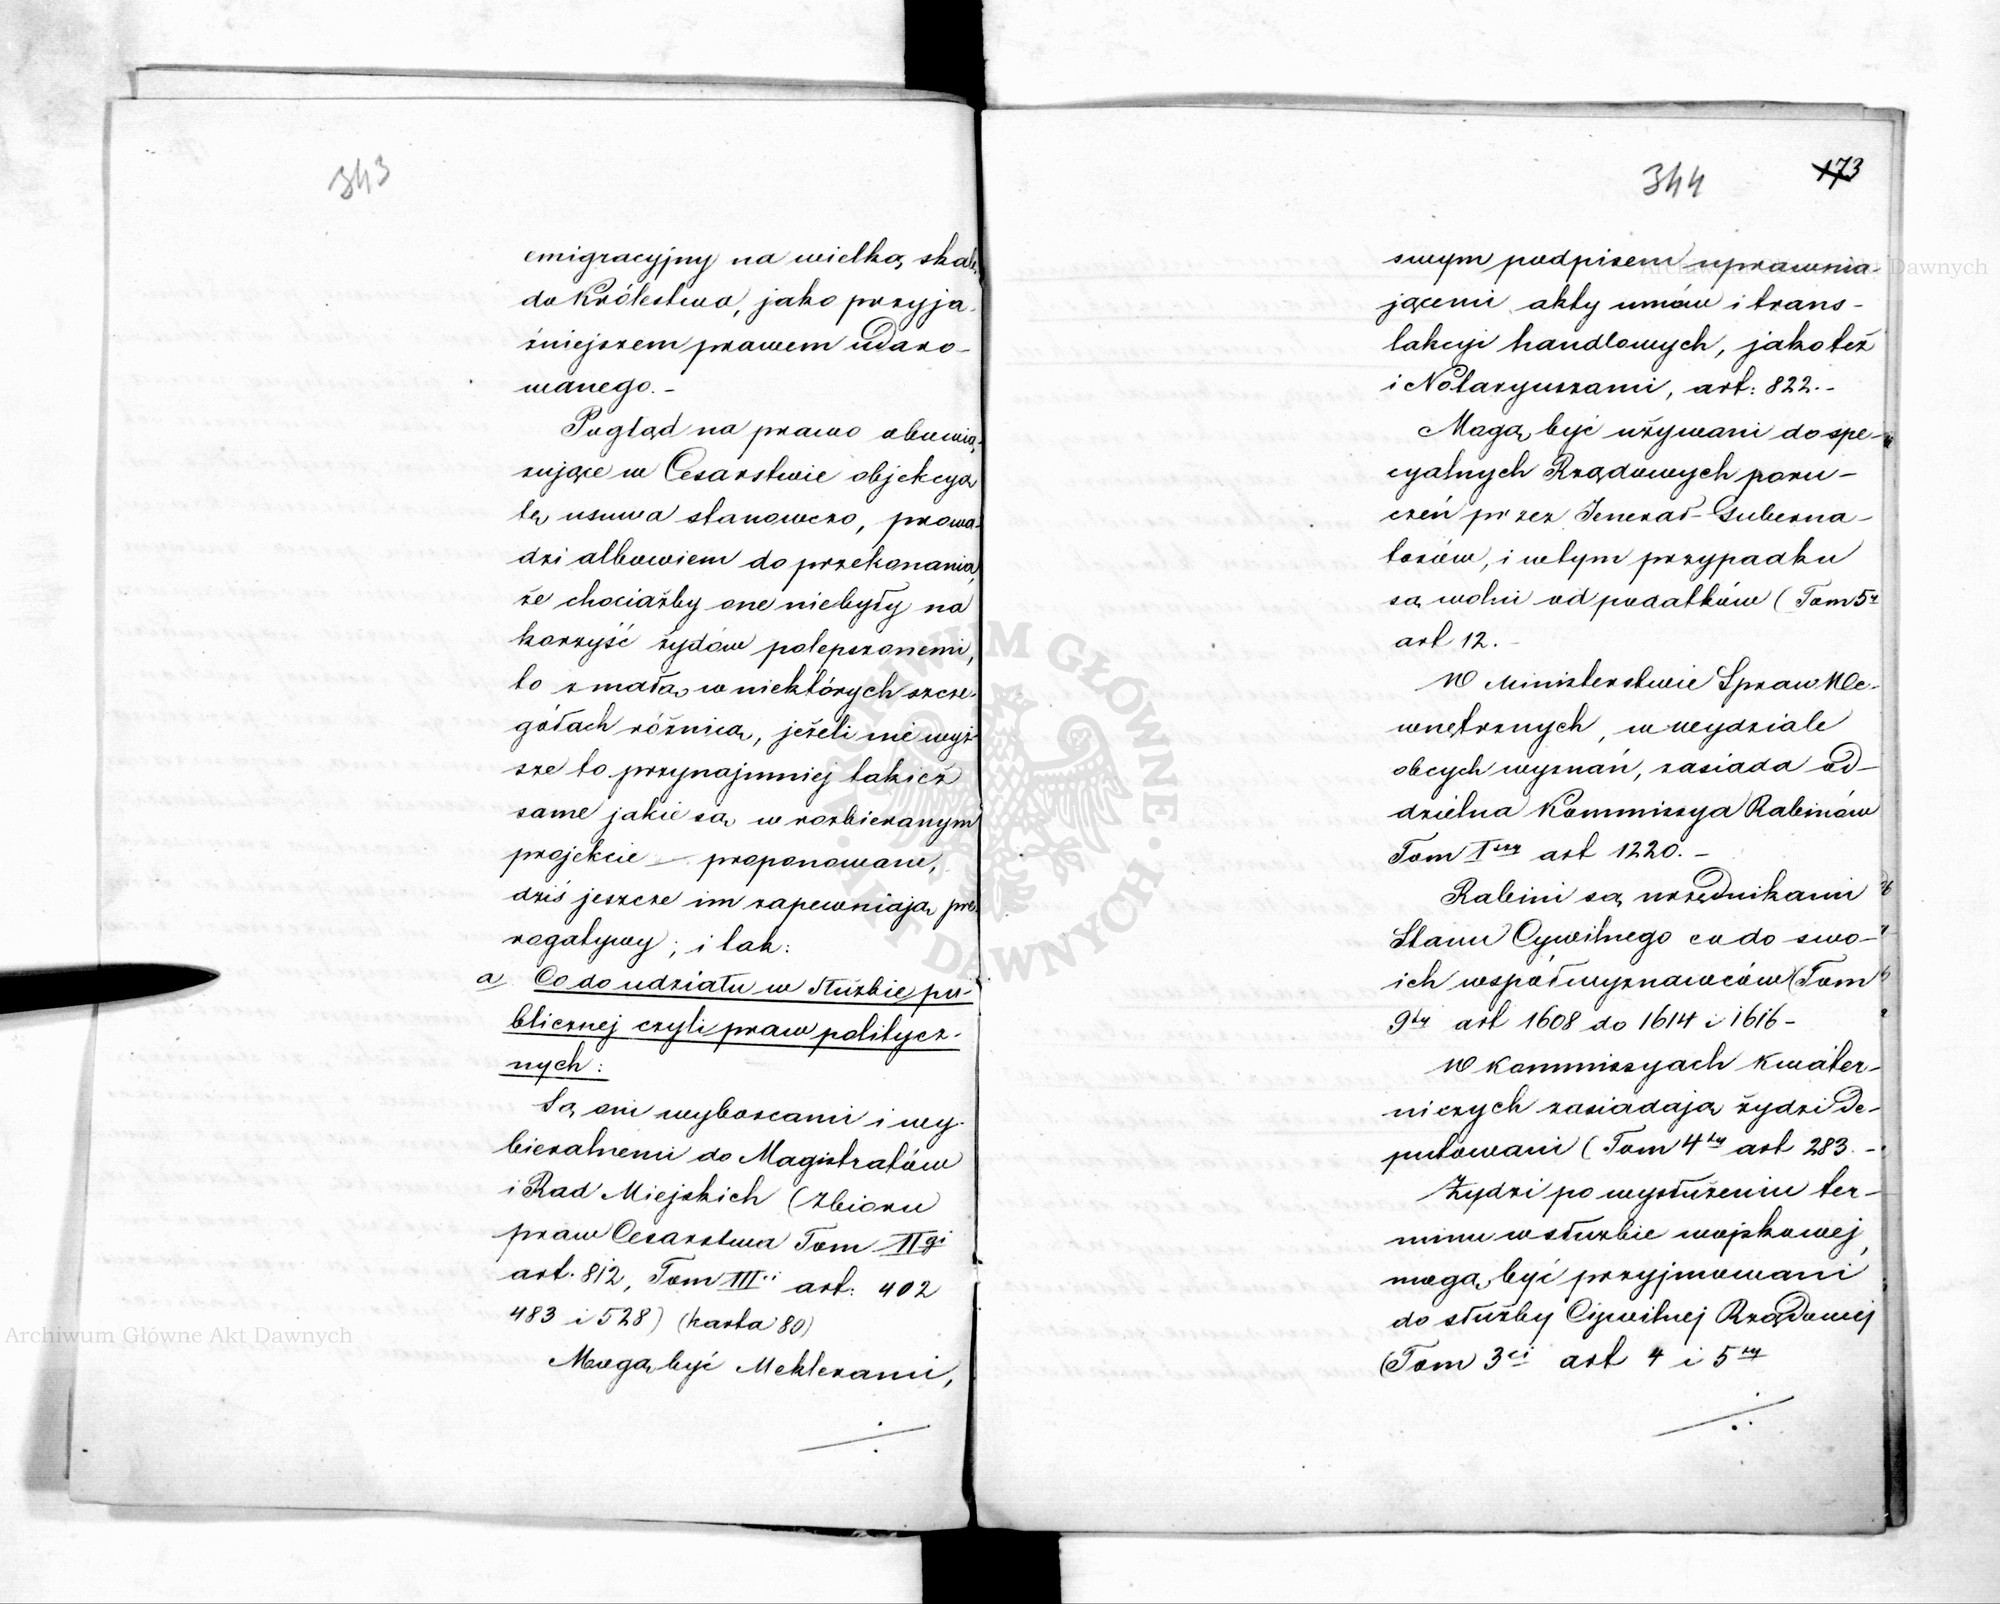 343
emigracyjny na wielką skalę
do Królestwa, jako przyja-
źniejszem prawem udaro-
wanego. -
Pogląd na prawo obowią-
zujące w Cesarstwie objekcyą
tę usuwa stanowczo, prowa-
dzi albowiem do przekonania,
że chociażby one niebyły na
korzyść żydów polepszonemi,
to z małą w niektórych szcze-
gółach różnicą, jeżeli nie wyż-
sze to przynajmniej takież
same jakie są w rozbieranym
projekcie — proponowane,
dziś jeszcze im zapewniają pre-
rogatywy; i tak:
a Co do udziału w służbie pu-
blicznej czyli praw politycz-
nych:
Są oni wyborcami i wy-
bieralnemi do Magistratów
i Rad Miejskich (Zbioru
praw Cesarstwa Tom IIgi
art. 812, Tom IIIci art: 402
483 i 528) (karta 80)
Mogą być Meklerami,
344 173
swym podpisem uprawnia-
jącemi akty umów i trans-
lakcyi handlowych, jakoteż
i Notaryuszami, art: 822. -
Mogą być używani do spe-
cyalnych Rządowych poru-
czeń przez Jenerał-Guberna-
torów, i w tym przypadku
są wolni od podatków (Tom 5y
art 12. -
W Ministerstwie Spraw We-
wnętrznych, w wydziale
obcych wyznań, zasiada od-
dzielna Kommissya Rabinów
Tom Iszy art 1220. -
Rabini są urzędnikami
Stanu Cywilnego co do swo-
ich współwyznawców (Tom
9ty art 1608 do 1614 i 1616 -
W kommissyach kwater-
niczych zasiadają żydzi de-
putowani (Tom 4ty art 283. -
Żydzi po wysłużeniu ter-
minu w służbie wojskowej,
mogą być przyjmowani
do służby Cywilnej Rządowej
(Tom 3ci art 4 i 5ty
ARCHIWUM GŁÓWNE AKT DAWNYCH
Archiwum Główne Akt Dawnych
Archiwum Główne Akt Dawnych